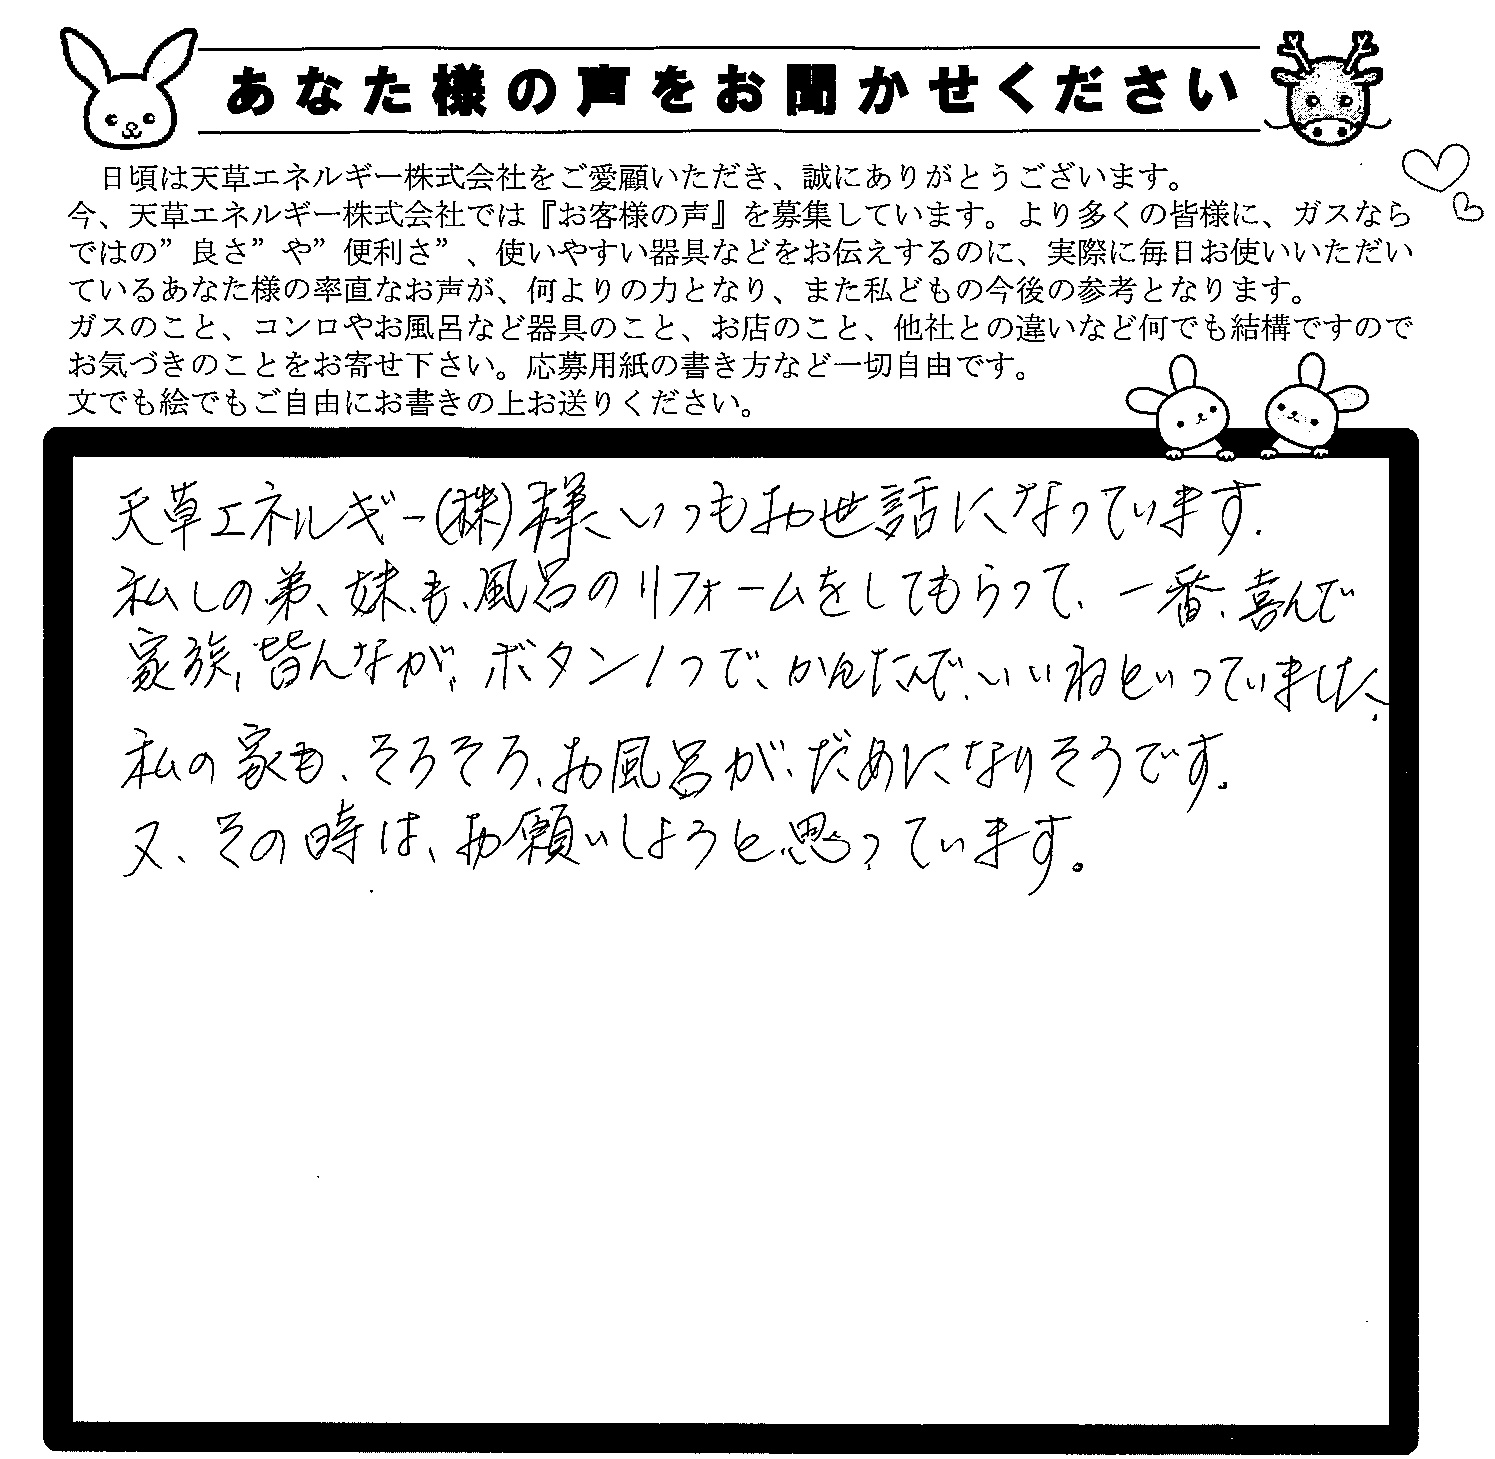 あなた様の声をお聞かせください
日頃は天草エネルギー株式会社をご愛顧いただき、誠にありがとうございます。
今、天草エネルギー株式会社では『お客様の声』を募集しています。より多くの皆様に、ガスなら
ではの”良さ”や”便利さ”、使いやすい器具などをお伝えするのに、実際に毎日お使いいただい
ているあなた様の率直なお声が、何よりの力となり、また私どもの今後の参考となります。
ガスのこと、コンロやお風呂など器具のこと、お店のこと、他社との違いなど何でも結構ですので
お気づきのことをお寄せ下さい。応募用紙の書き方など一切自由です。
文でも絵でもご自由にお書きの上お送りください。
天草エネルギー(株)様、いつもお世話になっています.
私しの弟、妹、も、風呂のリフォームをしてもらって、一番、喜んで
家族、皆んなが、ボタン1つで、かんたんで、いいねといっていました、
私の家も、そろそろ、お風呂が、だめになりそうです。
又、その時は、お願いしようと思っています。